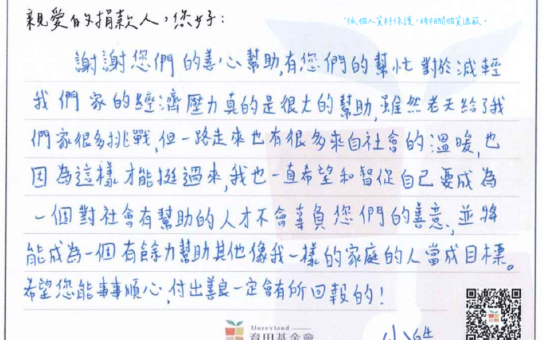 親愛的捐款人，您好：
*依個人資料保護，時相關個資遮蔽。
謝謝您們的善心幫助，有您們的幫忙對於減輕
我們家的經濟壓力真的是很大的幫助，雖然老天給了我
們家很多挑戰，但一路走來也有很多來自社會的溫暖，也
因為這樣才能挺過來，我也一直希望和督促自己要成為
一個對社會有幫助的人才不會辜負您們的善意，並將
能成為一個有餘力幫助其他像我一樣的家庭的人當成目標。
希望您能事事順心，付出善良一定會有所回報的！
育田基金會
小